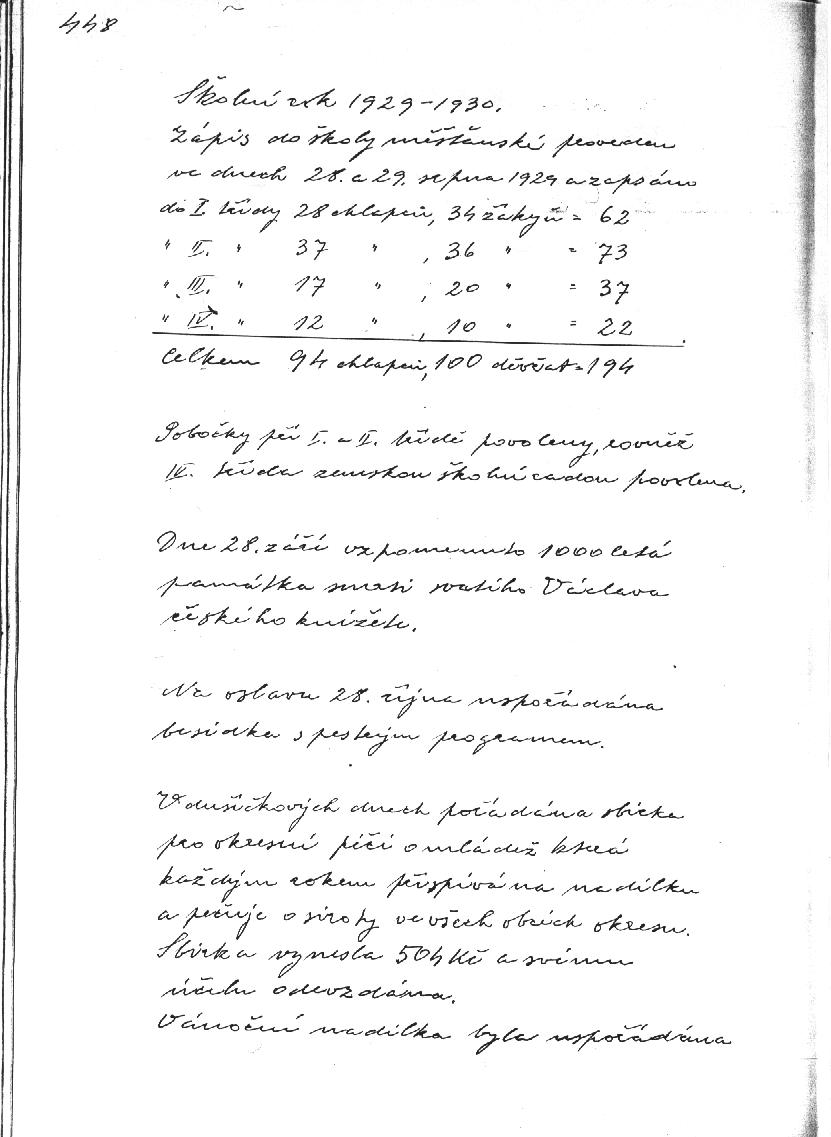 448
Školní rok 1929-1930.
Zápis do školy měšťanské proveden
ve dnech 28. a 29. srpna 1929 a zapsáno
do I. třídy 28 chlapců, 34 žákyň = 62
" II. " 37 " , 36 " = 73
" III. " 17 " , 20 " = 37
" IV. " 12 " , 10 " = 22
Celkem 94 chlapců, 100 děvčat = 194
Pobočky při I. a II. třídě povoleny, rovněž
IV. třída zemskou školní radou povolena.
Dne 28. září vzpomenuto 1000 letá
památka smrti svatého Václava
českého knížete.
Na oslavu 28. října uspořádána
besídka s pestrým programem.
V dušičkových dnech pořádána sbírka
pro okresní péči o mládež která
každým rokem přispívá na nadílku
a pečuje o siroty ve všech obcích okresu.
Sbírka vynesla 504 Kč a svému
účelu odevzdána.
Vánoční nadílka byla uspořádána